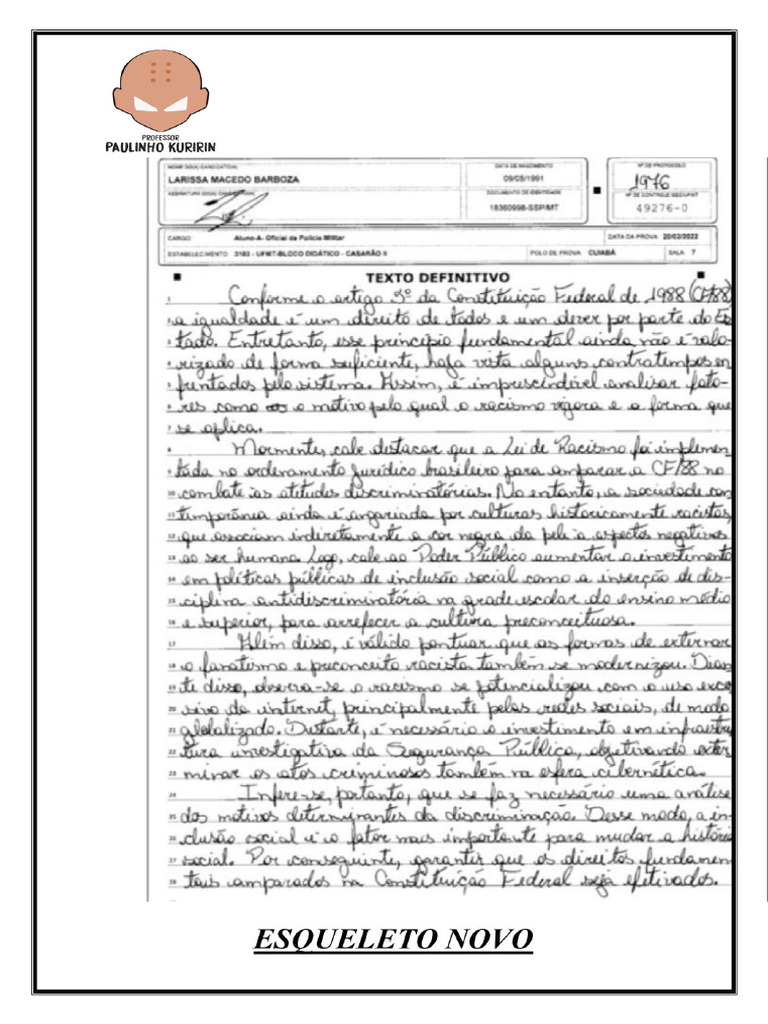 PROFESSOR
PAULINHO KURIRIN
NOME DO(A) CANDIDATO(A)
LARISSA MACEDO BARBOZA
ASSINATURA DO(A) CANDIDATO(A)
DATA DE NASCIMENTO
09/05/1991
DOCUMENTO DE IDENTIDADE
18360998-SSP/MT
Nº DE PROTOCOLO
1976
Nº DE CONTROLE
49276-0
CARGO Aluno-A- Oficial da Polícia Militar
DATA DA PROVA 20/02/2022
ESTABELECIMENTO 3163 - UFMT-BLOCO DIDÁTICO - CASARÃO II
POLO DE PROVA CUIABÁ
SALA 7
TEXTO DEFINITIVO
1 Conforme o artigo 5º da Constituição Federal de 1988 (CF/88)
2 a igualdade é um direito de todos e um dever por parte do Es
3 tado. Entretanto, esse princípio fundamental ainda não é valo-
4 rizado de forma suficiente, haja vista alguns contratempos en
5 frentados pelo sistema. Assim, é imprescindível analisar fato-
6 res como o motivo pelo qual o racismo vigora e a forma que
7 se aplica.
8 Mormente, cabe destacar que a Lei de Racismo foi implemen
9 tada no ordenamento jurídico brasileiro para amparar a CF/88 no
10 combate às atitudes discriminatórias. No entanto, a sociedade con
11 temporânea ainda é angariada por culturas historicamente racistas,
12 que associam indiretamente a cor negra da pele a aspectos negativos
13 ao ser humano. Logo, cabe ao Poder Público aumentar o investimento
14 em políticas públicas de inclusão social como a inserção de dis-
15 ciplina antidiscriminatória na grade escolar do ensino médio
16 e superior, para arrefecer a cultura preconceituosa.
17 Além disso, é válido pontuar que as formas de externar
18 o fanatismo e preconceito racista também se modernizou. Dian
19 te disso, observa-se o racismo se potencializou com o uso exces
20 sivo da internet, principalmente pelas redes sociais, de modo
21 globalizado. Destarte, é necessário o investimento em infraestru
22 tura investigativa da Segurança Pública, objetivando exter
23 minar os atos criminosos também na esfera cibernética.
24 Infere-se, portanto, que se faz necessário uma análise
25 dos motivos determinantes da discriminação. Desse modo, a in-
26 clusão social é o fator mais importante para mudar a história
27 social. Por conseguinte, garantir que os direitos fundamen
28 tais amparados na Constituição Federal seja efetivados.
ESQUELETO NOVO